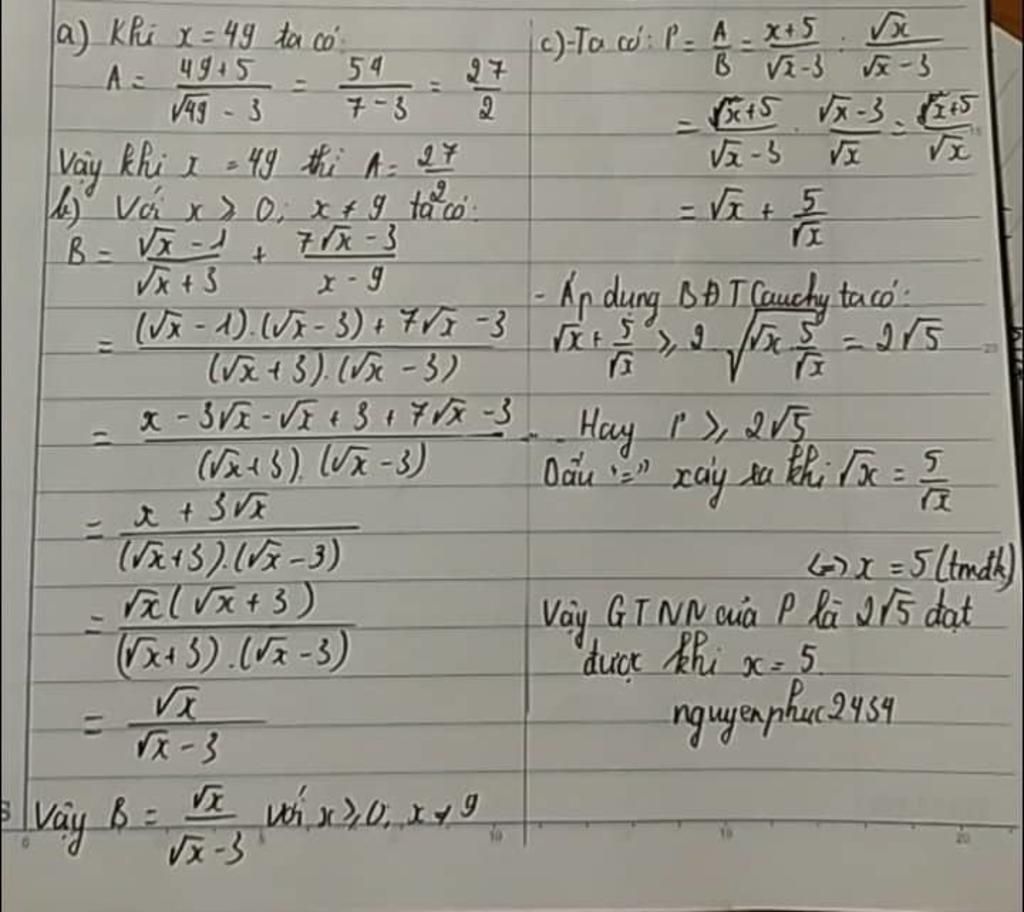 a) Khi x = 49 ta có:
A = (49+5)/(√49 - 3) = 54/(7-3) = 27/2
Vậy khi x = 49 thì A = 27/2
b) Với x ≥ 0; x ≠ 9 ta có:
B = (√x - 1)/(√x + 3) + (7√x - 3)/(x - 9)
= ((√x - 1).(√x - 3) + 7√x - 3)/((√x + 3).(√x - 3))
= (x - 3√x - √x + 3 + 7√x - 3)/((√x + 3).(√x - 3))
= (x + 3√x)/((√x+3).(√x - 3))
= (√x(√x + 3))/((√x+3).(√x - 3))
= √x/(√x - 3)
Vậy B = √x/(√x - 3) với x ≥ 0, x ≠ 9
c) - Ta có: P = A/B = (x+5)/(√x - 3) : √x/(√x - 3)
= (x+5)/(√x - 3) . (√x - 3)/√x = (x+5)/√x
= √x + 5/√x
- Áp dụng BĐT Cauchy ta có:
√x + 5/√x ≥ 2√(√x . 5/√x) = 2√5
Hay P ≥ 2√5
Dấu "=" xảy ra khi √x = 5/√x
<=> x = 5 (tmđk)
Vậy GTNN của P là 2√5 đạt
được khi x = 5
nguyenphuc2454
10
15
20